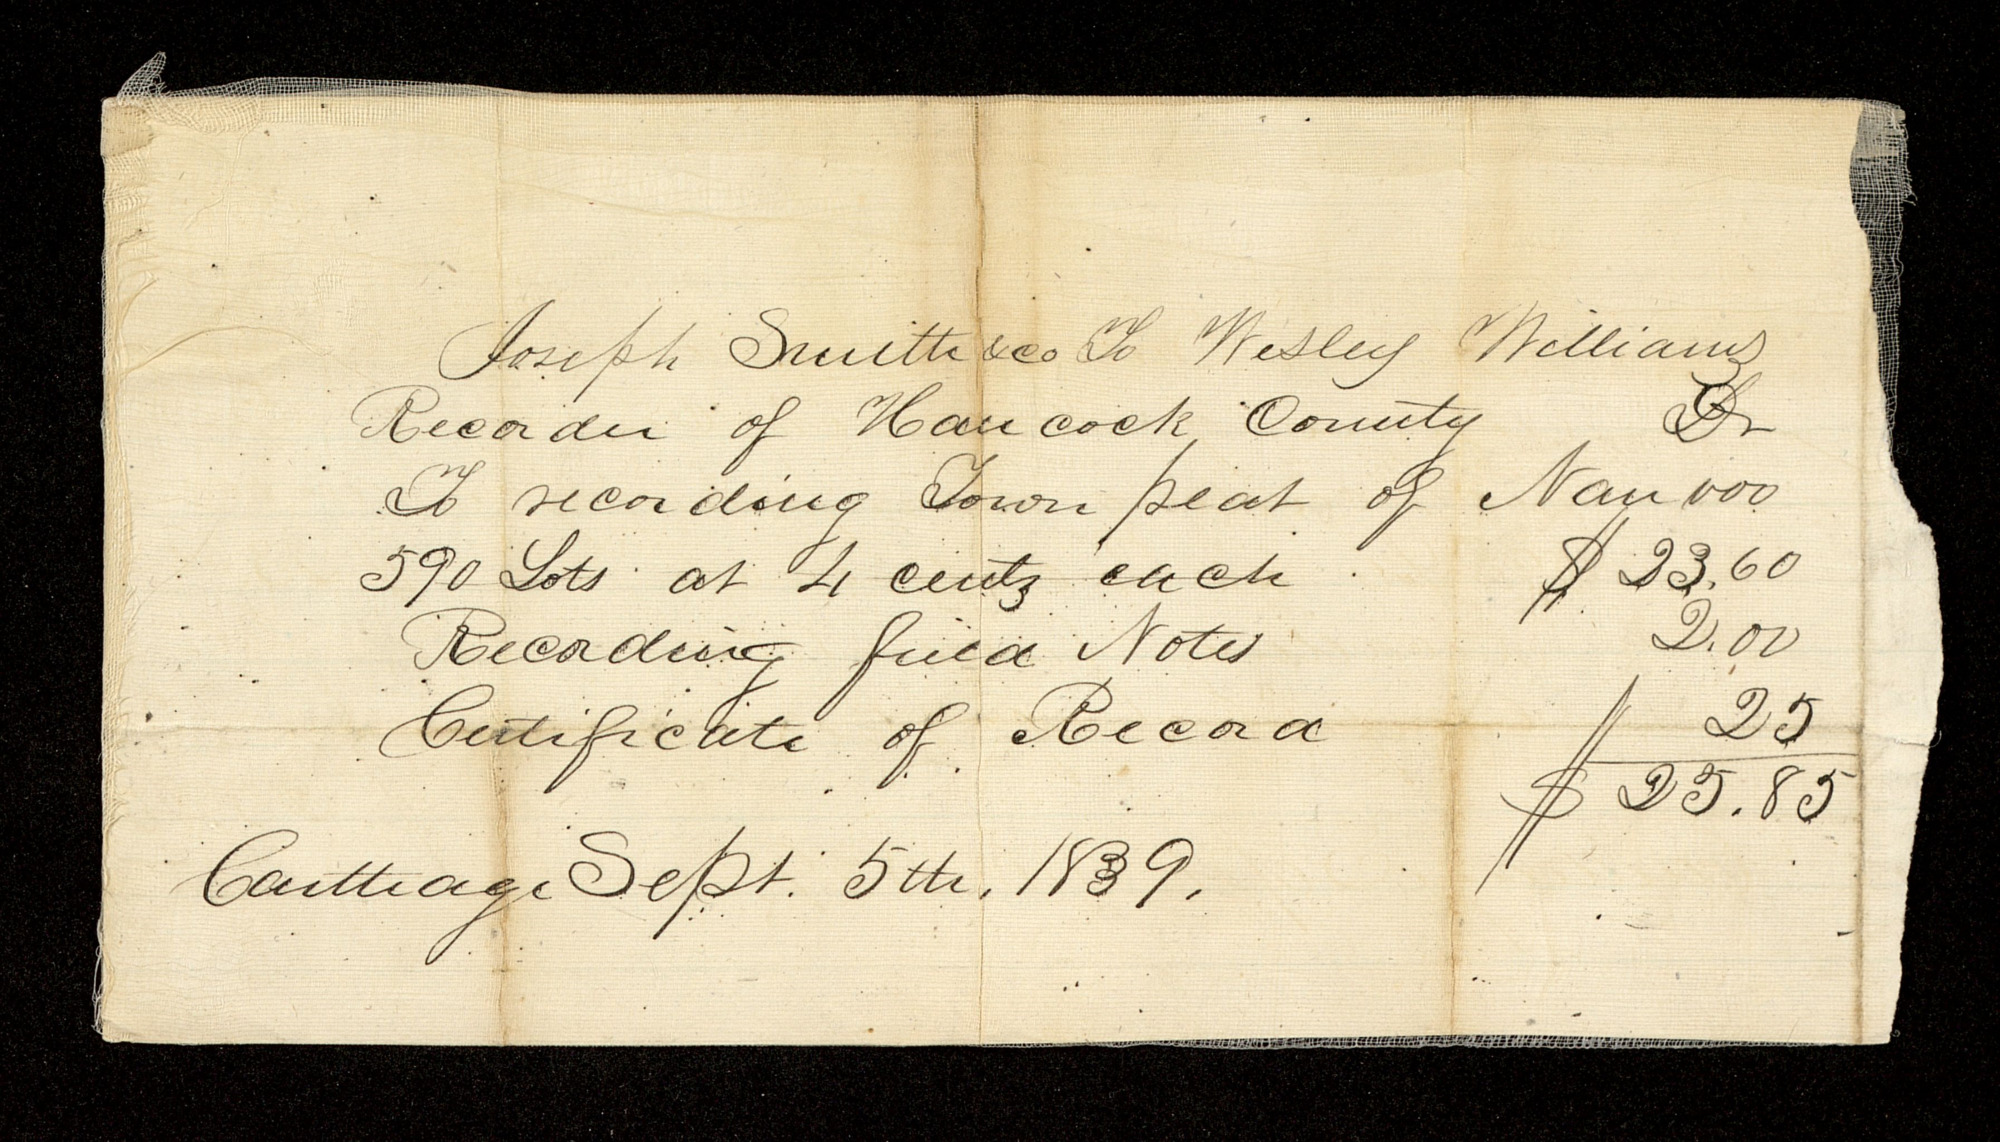 Joseph Smith & co To Wesley Williams
Recorder of Hancock County Dr
To recording Town pleat of Nauvoo
590 Lots at 4 cents each $ 23.60
Recording field Notes 2.00
Certificate of Record 25
$ 25.85
Carthage Sept. 5th. 1839.